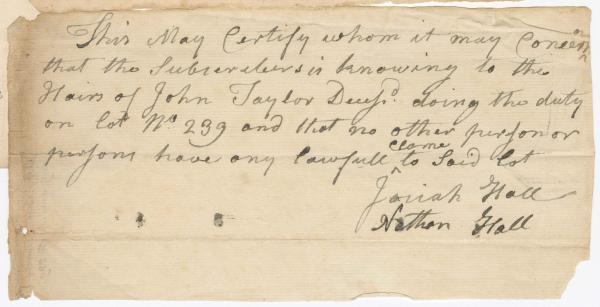 This May Certify whom it may Concern
that the Subscribers is knowing to the
Hairs of John Taylor Decesd. doing the duty
on Lot No. 239 and that no other person or
persons have any lawfull Clame to Said Lot
Josiah Hall
Nathan Hall